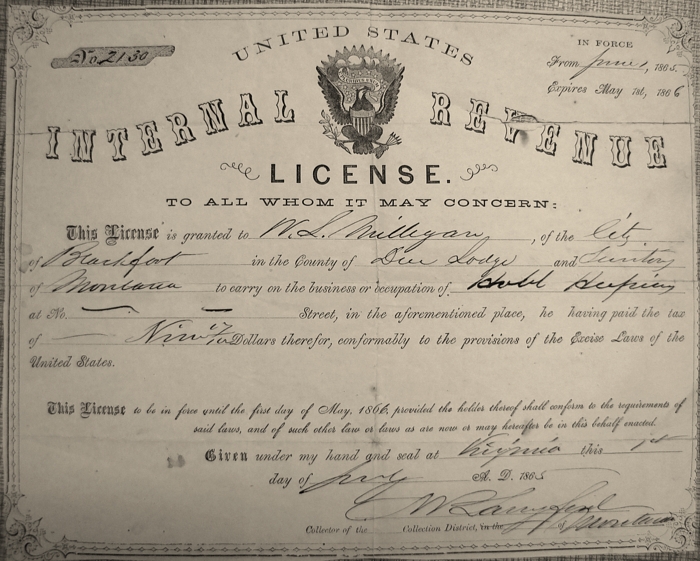 No. 2130
UNITED STATES
IN FORCE
From June 1, 1865.
Expires May 1st, 1866
INTERNAL REVENUE
LICENSE.
TO ALL WHOM IT MAY CONCERN:
This License is granted to W. L. Milligan, of the City
of Blackfoot in the County of Deer Lodge and Territory
of Montana to carry on the business or occupation of Hotel Keeping
at No. — — Street, in the aforementioned place, he having paid the tax
of — Dollars therefor, conformably to the provisions of the Excise Laws of the
United States.
This License to be in force until the first day of May, 1866, provided the holder thereof shall conform to the requirements of
said laws, and of such other law or laws as are now or may hereafter be in this behalf enacted.
Given under my hand and seal at Virginia this 1st
day of July A. D. 1865
N P Langford
Collector of the Collection District, in the of Montana